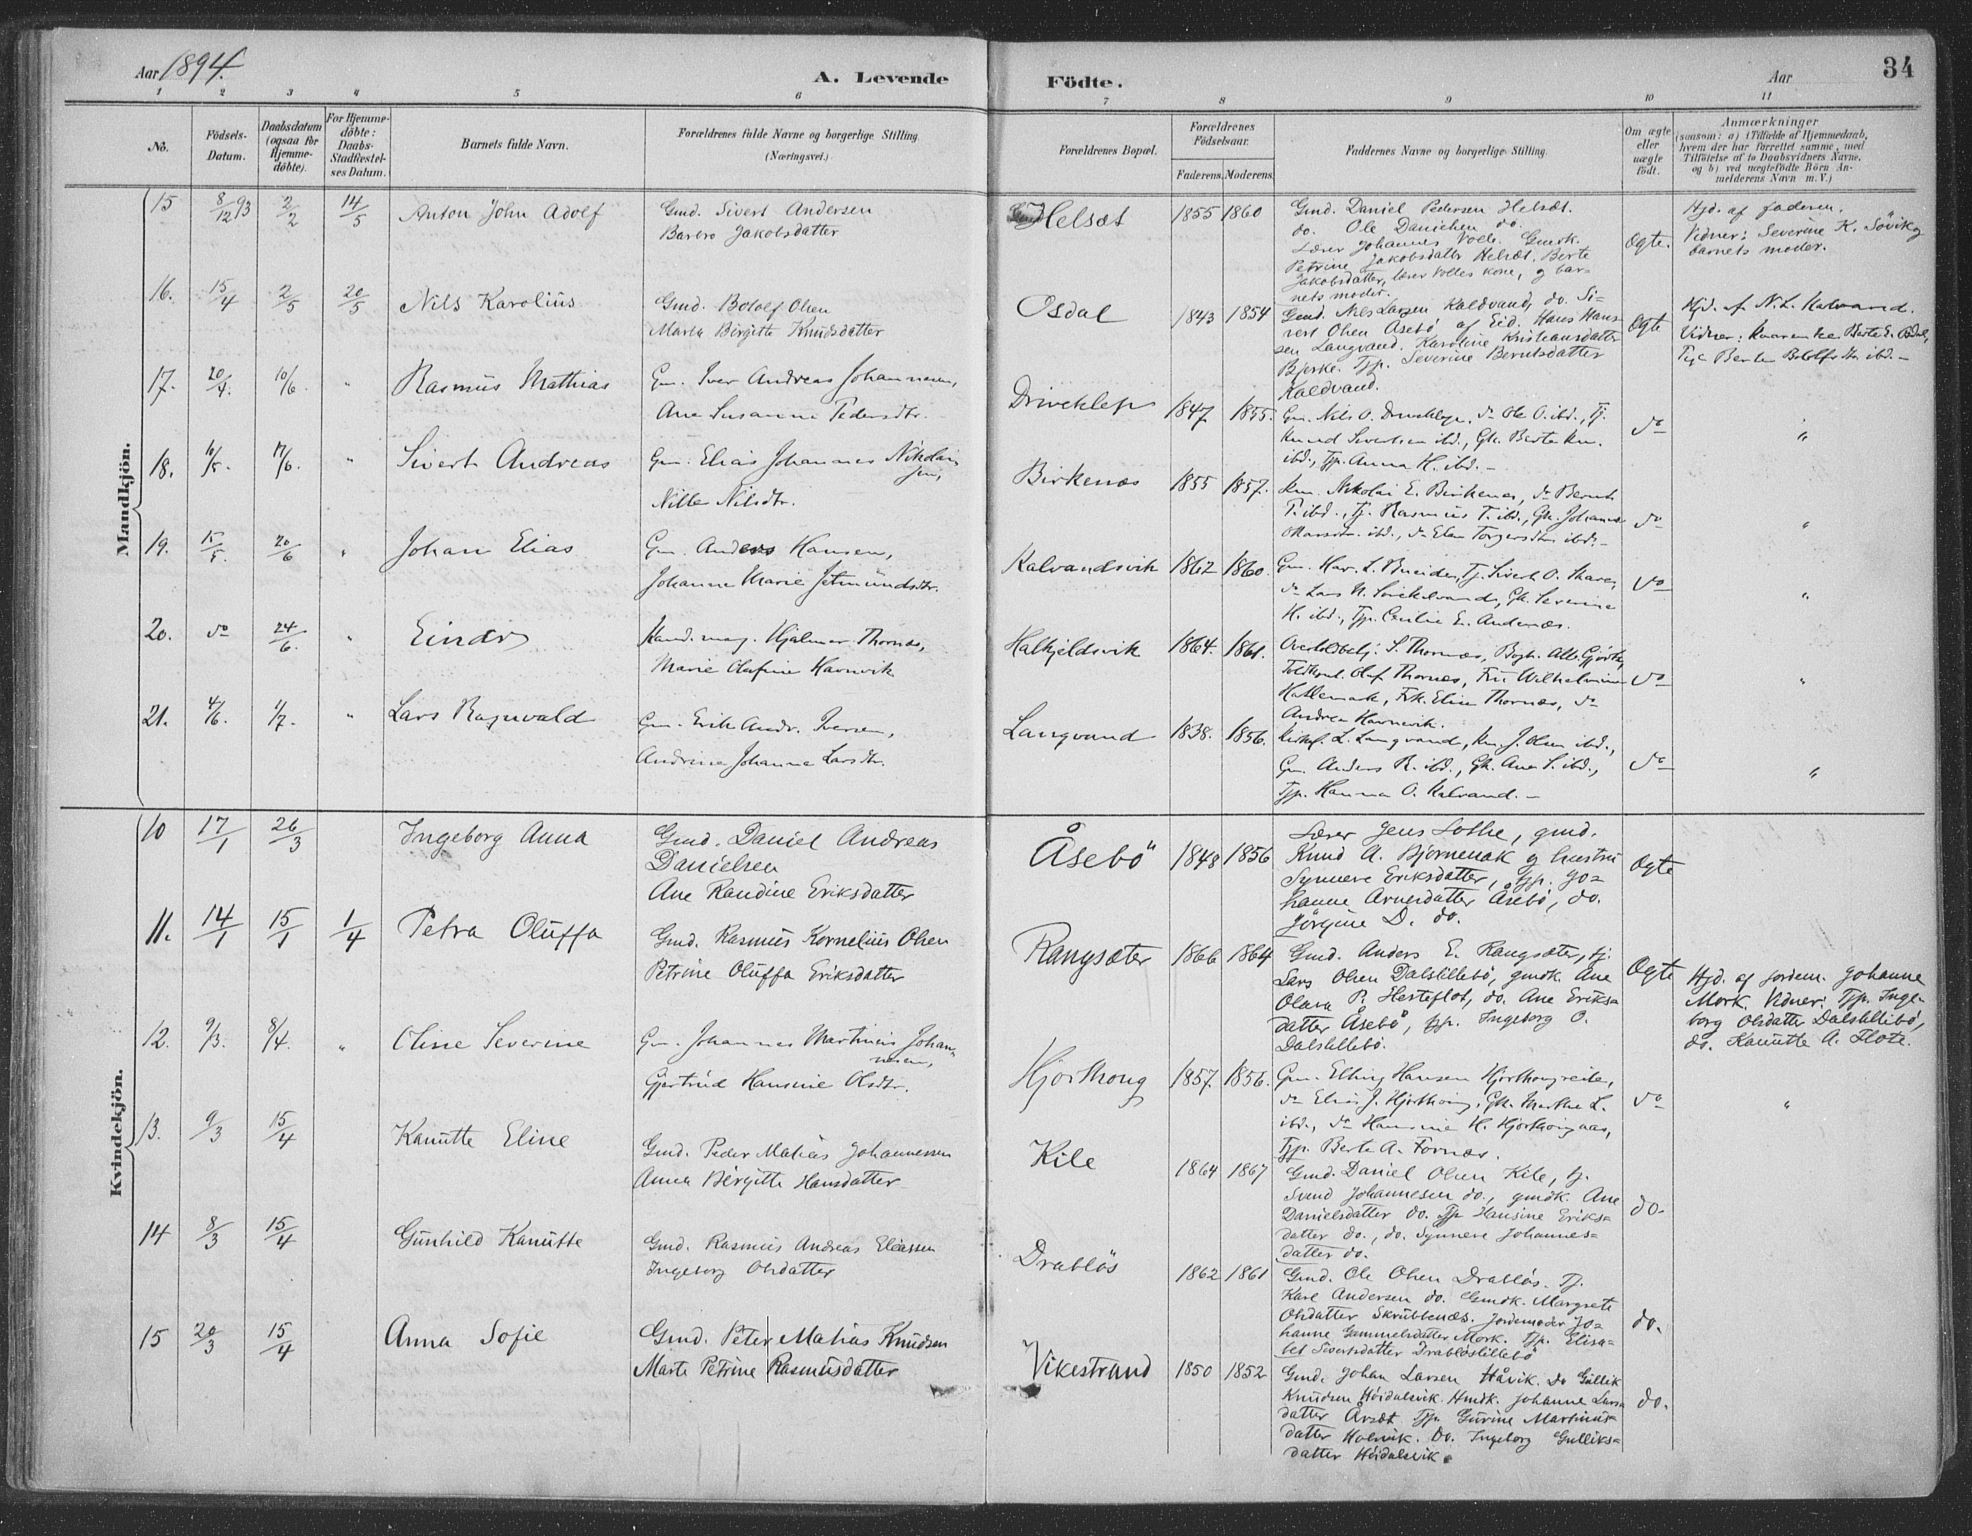 Aar 1894.
A. Levende Födte.
Aar
34
1 2 3 4 5 6 7 8 9 10 11
No.
Födsels-Datum.
Daabsdatum (ogsaa for Hjemme-döbte).
For Hjemme-döbte: Daabs-Stadfæstel-ses Datum.
Barnets fulde Navn.
Forældrenes fulde Navne og borgerlige Stilling. (Næringsvei.)
Forældrenes Bopæl.
Forældrenes Födselsaar.
Faderens. Moderens.
Faddernes Navne og borgerlige Stilling.
Om ægte eller uægte födt.
Anmærkninger
(saasom: a) i Tilfælde af Hjemmedaab, hvem der har forrettet samme, med Tilföielse af to Daabsvidners Navne, og b) ved uægtefödte Börn An-melderens Navn m. V.)
Mandkjön.
15 8/12 93 2/2 14/5 Anton John Adolf
Gmd. Sivert Andersen
Barbro Jakobsdatter
Helsæt 1855 1860
Gmd. Daniel Pedersen Helsæt.
do. Ole Danielsen do.
Lærer Johannes Volle. Gmdk.
Petrine Jakobsdatter Helsæt. Berte
Jakobsdatter, lærer Volles kone, og bar-
nets moder.
Ægte.
Hjd. af faderen.
Vidner: Severine K. Søvik og
barnets moder.
16. 15/4 2/5 20/5 Nils Karolius
Gmd. Botolf Olsen
Marta Birgitte Knudsdatter
Osdal 1843 1854
Gmd. Nils Larsen Kaldvand, do. Si-
vert Olsen Åsebö, af Eid. Hans Han-
sen Langvand. Karoline Kristiansdatter
Bjerke. Tjp. Severine Berntsdatter
Kaldvand.
Ægte
Hjd. af N. L. Kalvand.
Vidner: Berte E. Osdal,
Pige Berte ibd. -
17. 20/4. 10/6. " Rasmus Mathias
Gm. Iver Andreas Johannesen,
Ane Susanna Pedersdtr.
Driveklep 1847 1855.
Gm. Nils O. Driveklep, do Ole O. ibd., Tj.
Knud Sivertsen ibd., Gk. Berte Kn.
ibd., Tjp. Anna H. ibd. -
do "
18. 17/6. " Sivert Andreas
Gm. Elias Johannes Nikolai-
sen,
Nille Nilsdtr.
Birkenæs 1855 1857.
Km. Nikolai E. Birkenæs, do Bernt
T. ibd., Tj. Rasmus T. ibd., Gk. Johanne
ibd., do Elen Torgersdtr ibd. -
do "
19. 15/5. 20/6 " Johan Elias
Gm. Anders Hansen,
Johanne Marie Jetmundsdtr.
Kalvandsvik 1862 1860.
Tj. Sivert O.
do Lars N. Gk. Severine
H. ibd., Tjp. Cecilie E. Andenæs.
do "
20. do 24/6. " Eindr
Kand. mag. Hjalmar Thornæs,
Marie Olufine Havnvik
Halkjeldsvik 1864. 1861.
S. Thornæs, Alb. Gjörtz,
Olaf Thornæs, Fru Wilhelmine
Hallemark, Frk. Elise Thornæs, do
Andrea Havnevik.
do "
21. 4/6. 1/7. " Lars Ragnvald
Gm. Erik Andr. Iversen,
Andrine Johanne Larsdtr.
Langvand 1838. 1856.
L. Langvand, Km. J. Olsen ibd.,
Gm. Anders R. ibd., Gk. Ane S. ibd.,
Tjp. Hanna O. Kalvand. -
do "
Kvindekjön.
10 17/1 26/3 Ingeborg Anna
Gmd. Daniel Andreas
Danielsen
Ane Randine Eriksdatter
Åsebö 1848 1856
Lærer Jens Lothe, gmd.
Knud A. Bjørnenak og hustru
Synnøve Eriksdatter, tjp. Jo-
hanne Arnesdatter Åsebö, do.
Jörgine D. do.
Ægte
11. 14/1 15/1 1/4 Petra Oluffa
Gmd. Rasmus Kornelius Olsen
Petrine Oluffa Eriksdatter
Rangsæter 1866 1864
Gmd. Anders E. Rangsæter, tj.
Lars Olsen Dalslillebö, gmdk. Ane
Olava P. Herteflot, do. Ane Eriks-
datter Åsebö, tjp. Ingeborg O.
Dalslillebö.
Ægte
Hjd. af jordem. Johanne
Mork. Vidner: Tjp. Inge-
borg Olsdatter Dalslillebö,
do. Kanutte A. Flote.
12. 9/3. 8/4. " Oline Severine
Gm. Johannes Martinus Johan-
nesen,
Gjertrud Hansine Olsdtr.
Hjorthoug 1857. 1856.
Gm. Elling Hansen Hjorthougreite,
do Elias J. Hjorthoug, Gk. Marthe L.
ibd., do Hansine H. Hjorthougaas,
Tjp. Berte A. Fornæs.
do "
13. 9/3 15/4 Kanutte Eline
Gmd. Peder Matias Johannessen
Anna Birgitte Hansdatter
Kile 1864 1867
Gmd. Daniel Olsen Kile, tj.
Svend Johannesen do., gmdk. Ane
Danielsdatter do. Tjp Hansine Eriks-
datter do., do. Synneve Johannes-
datter do.
do.
14 8/3 15/4 Gunhild Kanutte
Gmd. Rasmus Andreas Eliassen
Ingeborg Olsdatter
Drabløs 1862 1861
Gmd. Ole Olsen Drabløs. Tj.
Karl Andersen do. Gmdk. Margrete
Olsdatter Skrubbenæs. Jordemoder Jo-
hanne Gammelsdatter Mork. Tjp. Elisa-
bet Sivertsdatter Drabløslillebö
do.
15 20/3 15/4 Anna Sofie
Gmd. Peter Matias Knudsen
Marte Petrine Rasmusdatter
Vikestrand 1850 1852
Gmd. Johan Larsen Håvik. Do Gullik
Knudsen Höidalsvik. Hmdk. Johanne Lars-
datter Årsæt. Tjp. Gurine Martinus-
datter Håvik. Do. Ingeborg Gulliks-
datter Höidalsvik.
do.